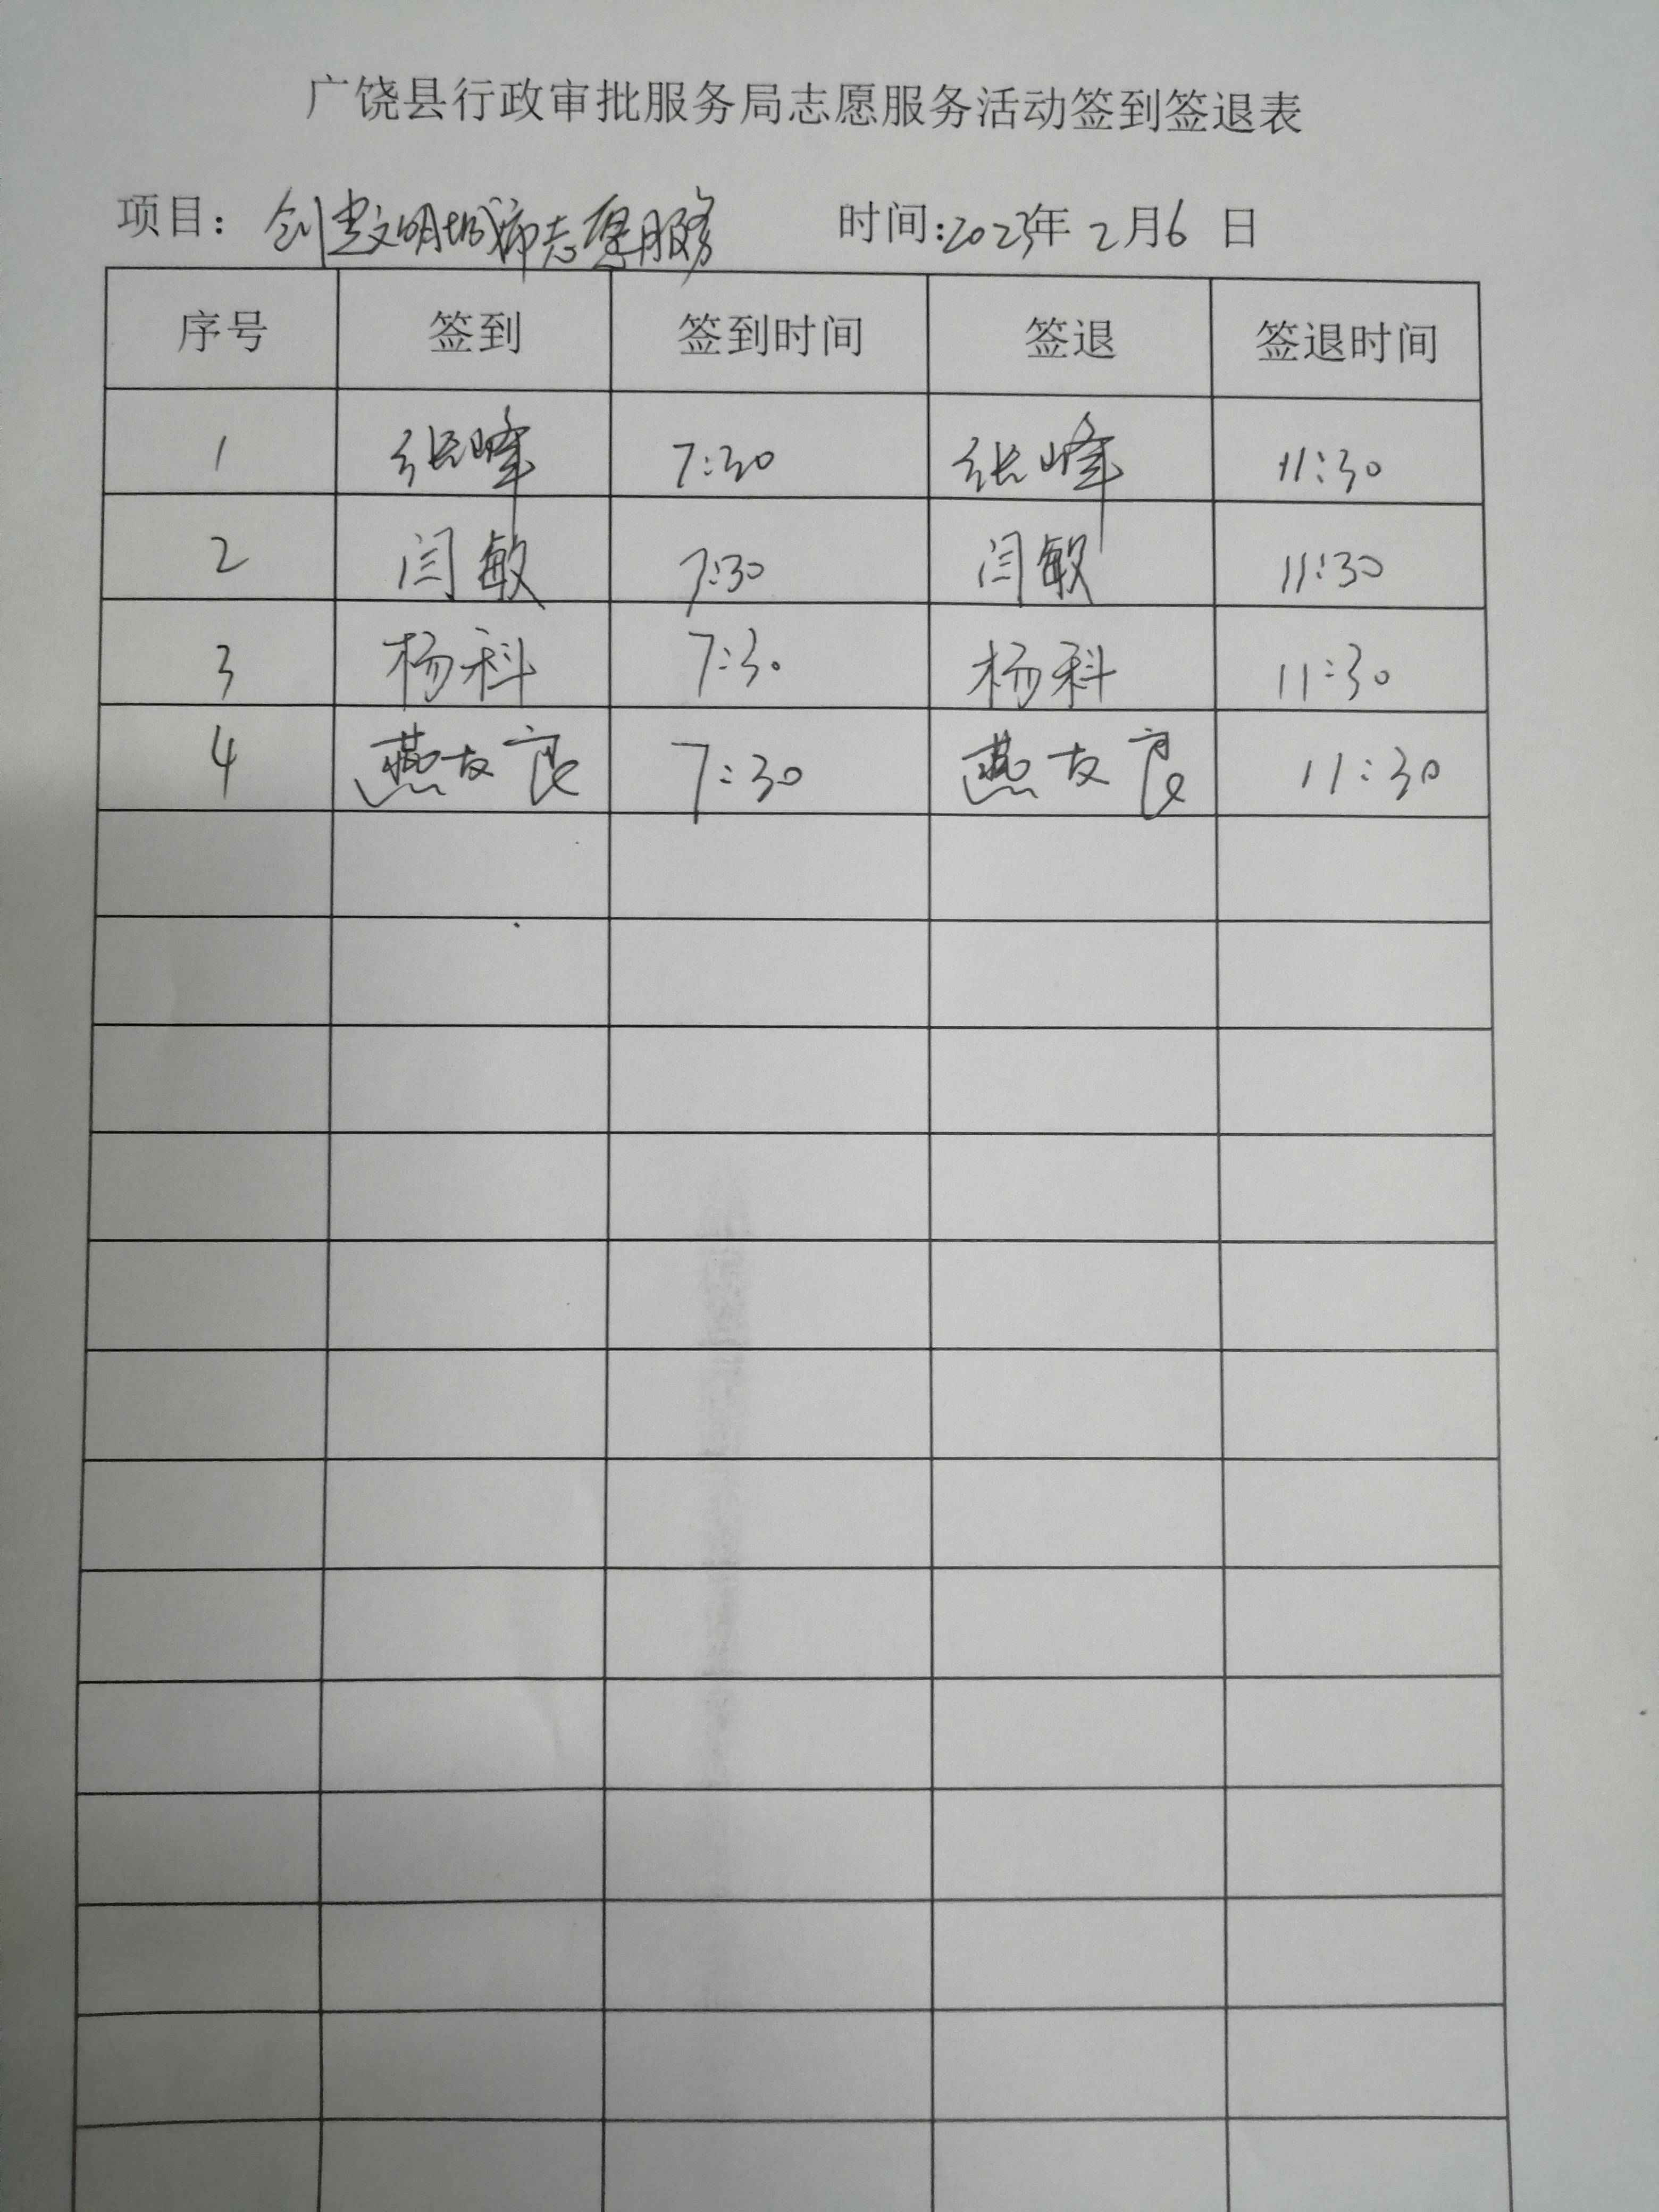 广饶县行政审批服务局志愿服务活动签到签退表
项目：创建文明城市志愿服务 时间：2023年 2月6 日
序号 签到 签到时间 签退 签退时间
1 张峰 7:30 张峰 11:30
2 闫敏 7:30 闫敏 11:30
3 杨科 7:30 杨科 11:30
4 燕友良 7:30 燕友良 11:30